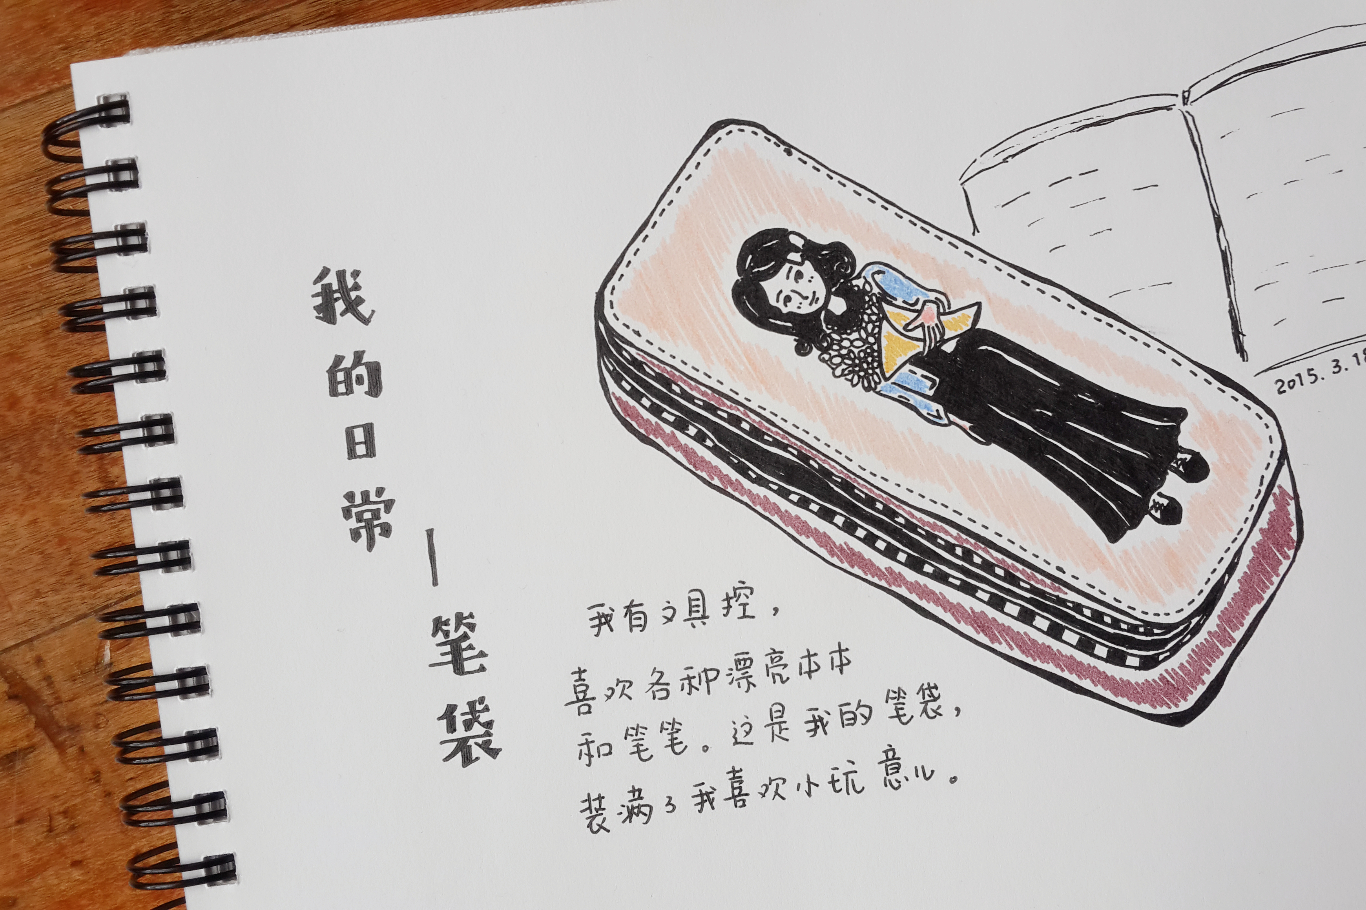 我的日常
—笔袋
我有文具控，
喜欢各种漂亮本本
和笔笔。这是我的笔袋，
装满了我喜欢小玩意儿。
2015.3.18